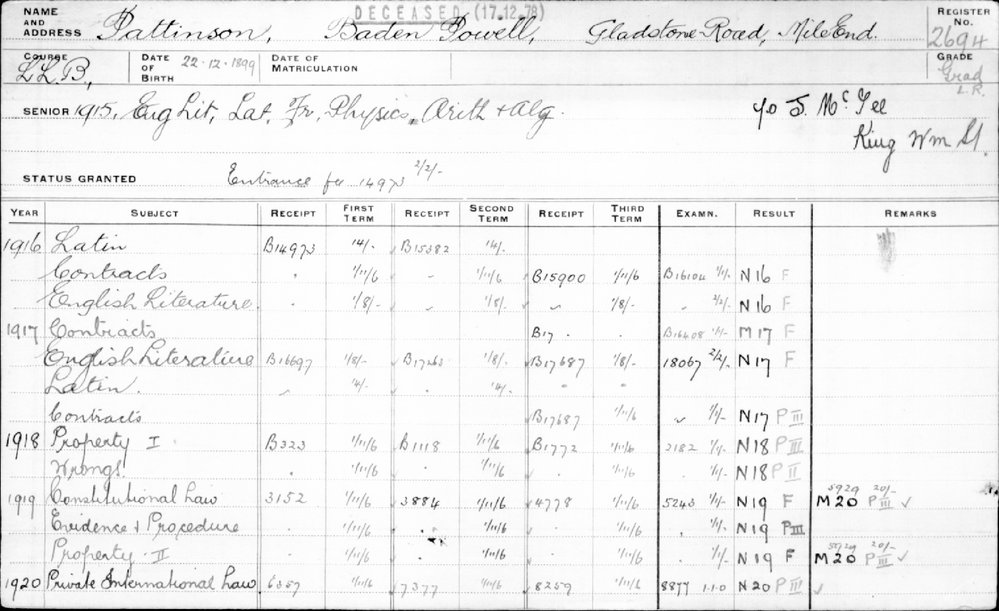 DECEASED (17.12.78)
NAME AND ADDRESS Pattinson, Baden Powell, Gladstone Road, Mile End. REGISTER No. 2694
COURSE LL.B, DATE OF BIRTH 22.12.1899 DATE OF MATRICULATION GRADE Grad L.R.
SENIOR 1915, Eng Lit, Lat, Fr, Physics, Arith + Alg. c/o J. McGee
King Wm St.
STATUS GRANTED Entrance fee 14973 2/2/-
YEAR SUBJECT RECEIPT FIRST TERM RECEIPT SECOND TERM RECEIPT THIRD TERM EXAMN. RESULT REMARKS
1916 Latin B14973 14/- B15382 14/-
Contracts " 1/11/6 " 1/11/6 B15900 1/11/6 B16104 1/1/- N16 F
English Literature. " 1/8/- 1/8/- " 1/8/- " 2/2/- N16 F
1917 Contracts B17 . B16408 1/1/- M17 F
English Literature B16697 1/8/- 1/8/- B17687 1/8/- 18067 2/2/- N17 F
Latin. " 14/- 14/- " "
Contracts B17687 1/11/6 " 1/1/- N17 P III
1918 Property I B323 1/11/6 B1118 1/11/6 B1772 1/11/6 2182 1/1/- N18 P III
Wrongs . 1/11/6 . 1/11/6 . 1/11/6 . 1/1/- N18 P II
1919 Constitutional Law 3152 1/11/6 3884 1/11/6 4778 1/11/6 5243 1/1/- N19 F M20 5929 P III 20/- ✓
Evidence & Procedure . 1/11/6 . 1/11/6 . 1/11/6 . 1/1/- N19 P III
Property II . 1/11/6 . 1/11/6 . 1/11/6 . 1/1/- N19 F M20 5929 P II 20/- ✓
1920 Private International Law. 6357 1/11/6 7377 1/11/6 8259 1/11/6 8877 1.1.0 N20 P II ✓